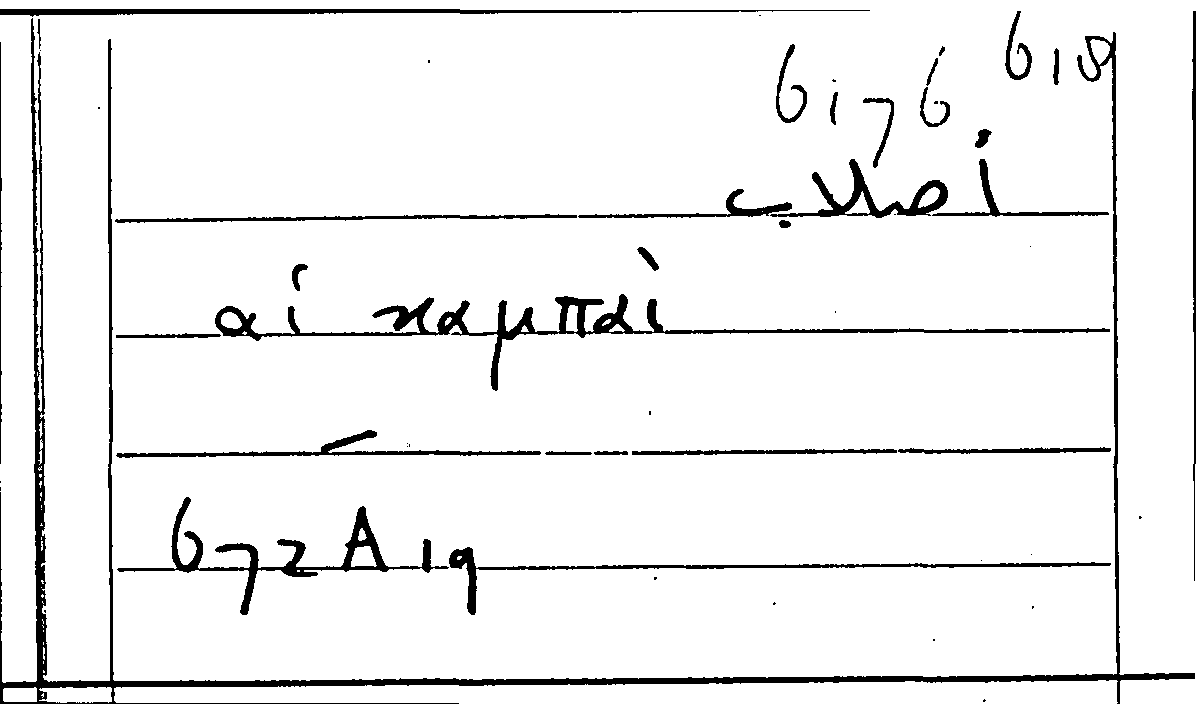 618
6176
أصلاب
αἱ καμπαὶ
–
672 A 19